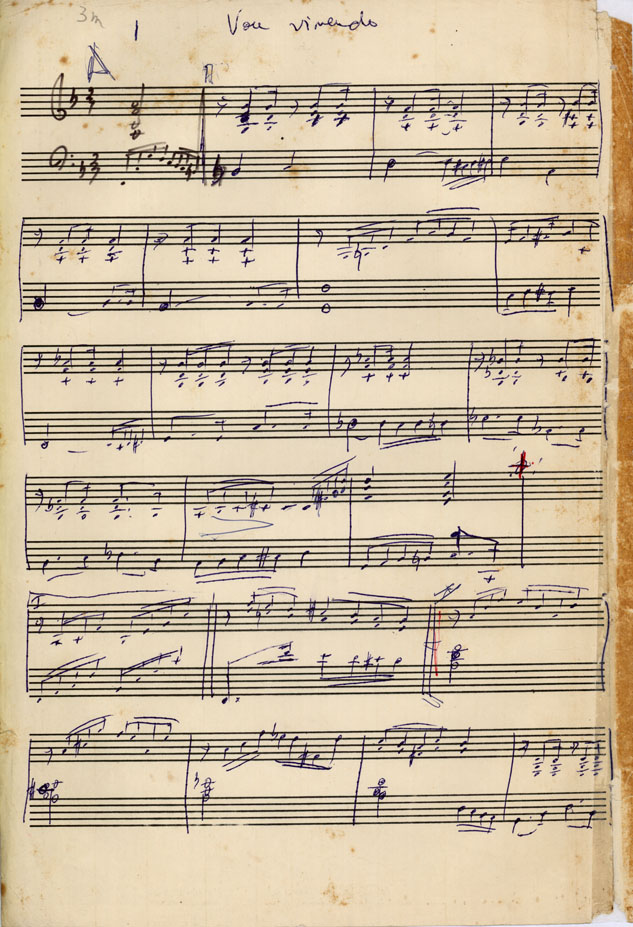 3m
1 Vou vivendo
A